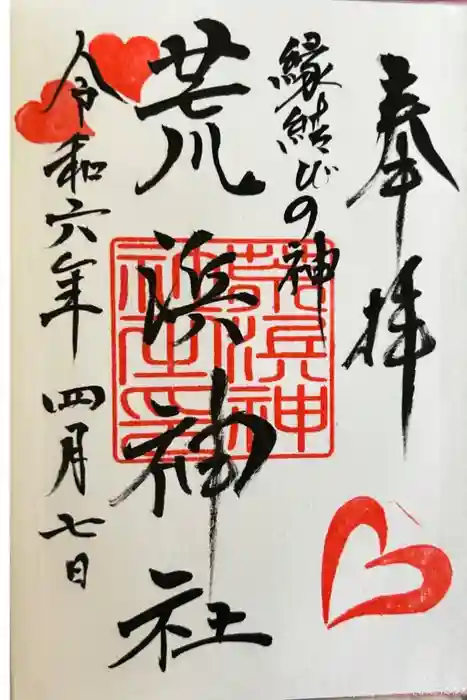 奉拝
縁結びの神
荒浜神社
荒浜神社印
令和六年四月七日